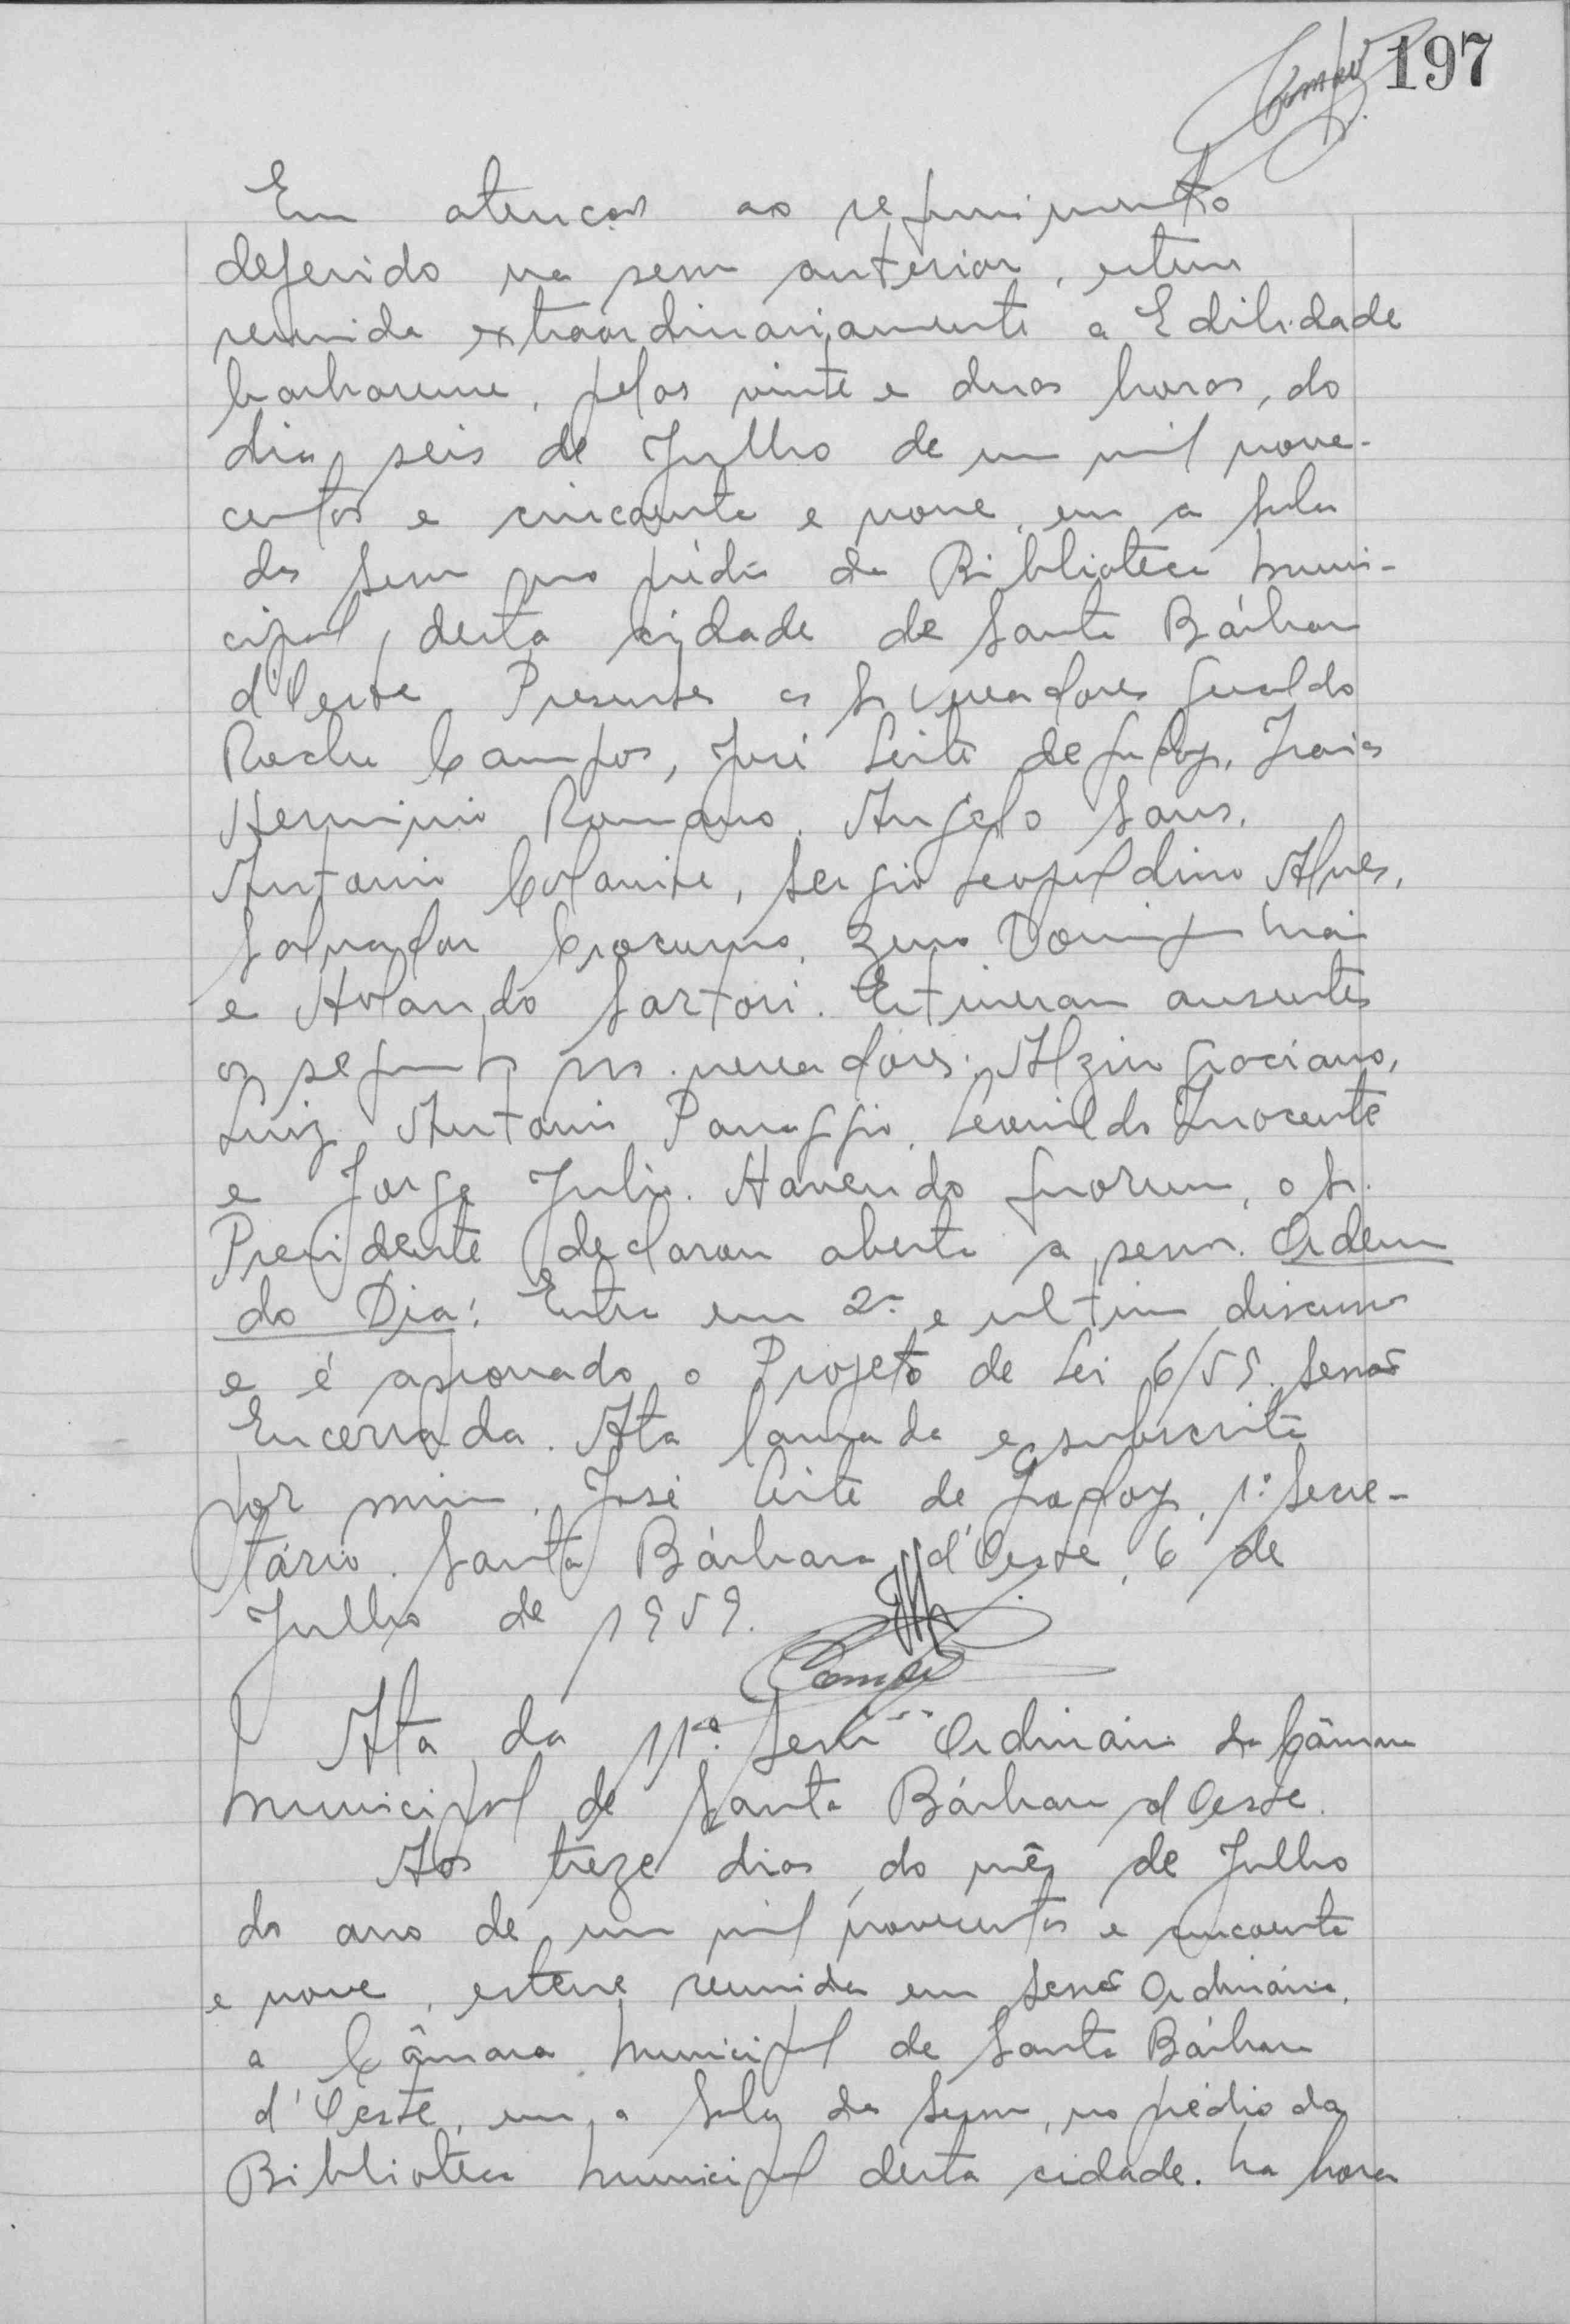 Campos 197
Em atenção ao requerimento
deferido na sessão anterior, esteve
reunida extraordinariamente a Edilidade
barbarense, pelas vinte e duas horas, do
dia seis de Julho de um mil nove-
centos e cincoenta e nove, em a Sala
das Sessões no prédio da Biblioteca Muni-
cipal, desta cidade de Santa Bárbara
d'Oeste Presentes os Srs Vereadores Geraldo
Rocha Campos, José Leite de Godoy, Isaias
Herminio Romano, Angelo Sans,
Antonio Colanite, Sergio Leopoldino Alves,
Salvador Crocumo, Zeno Maia
e Holando Sartori. Estiveram ausentes
os seguintes srs. vereadores: Alzir Graciano,
Luiz Antonio Panaggio, Leonildo Inocente
e Jorge Julio. Havendo quorum, o Sr.
Presidente declarou aberta a sessão. Ordem
do Dia: Entra em 2ª e ultima discussão
e é aprovado o Projeto de Lei 6/59. Sessão
Encerrada. Ata lavrada e subscrita
por mim, José Leite de Godoy, 1º Secre-
tário. Santa Bárbara d'Oeste, 6 de
Julho de 1959.
Campos
Ata da 11ª Sessão Ordinária da Câmara
Municipal de Santa Bárbara d'Oeste.
Aos treze dias do mês de Julho
do ano de um mil novecentos e cincoenta
e nove, esteve reunida em Sessão Ordinária,
a Câmara Municipal de Santa Bárbara
d'Oeste, em a Sala das Sessões, no prédio da
Biblioteca Municipal desta cidade. Na hora